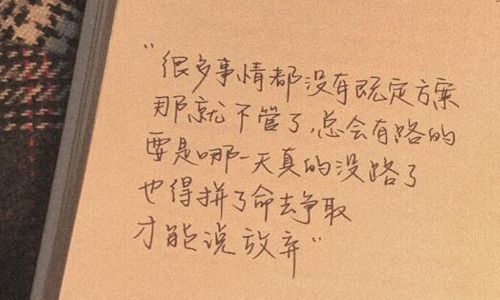 "很多事情都没有既定方案
那就不管了,总会有路的
要是哪一天真的没路了
也得拼了命去争取
才能说放弃"